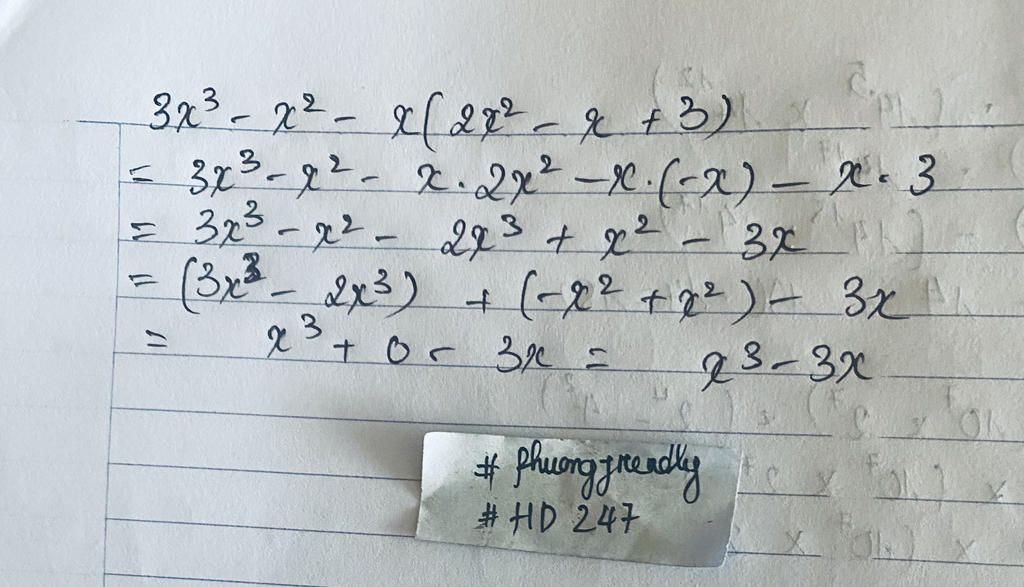 3x³ - x² - x(2x² - x + 3)
= 3x³ - x² - x . 2x² - x . (-x) - x . 3
= 3x³ - x² - 2x³ + x² - 3x
= (3x³ - 2x³) + (-x² + x²) - 3x
= x³ + 0 - 3x = x³ - 3x
# phuongfriendly
# HD 247